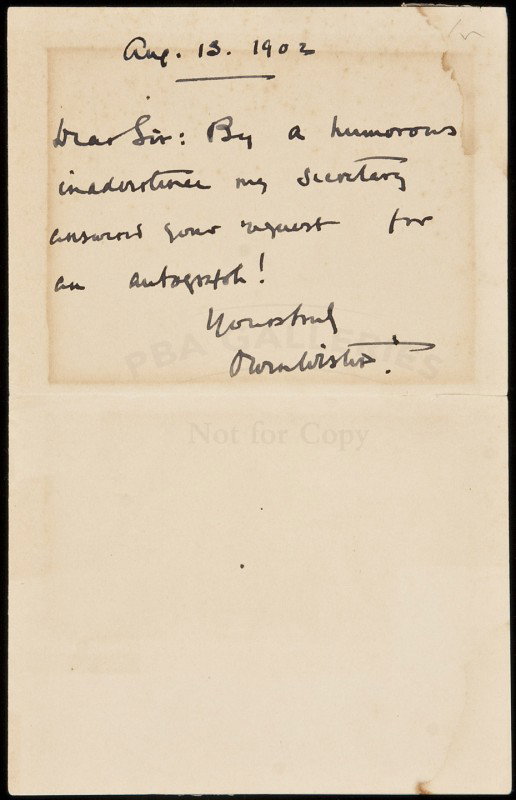 Aug. 13. 1902
Dear Sir: By a humorous
inadvertence my secretary
answered your request for
an autograph!
Yours truly
Owen Wister.
PBA GALLERIES
Not for Copy